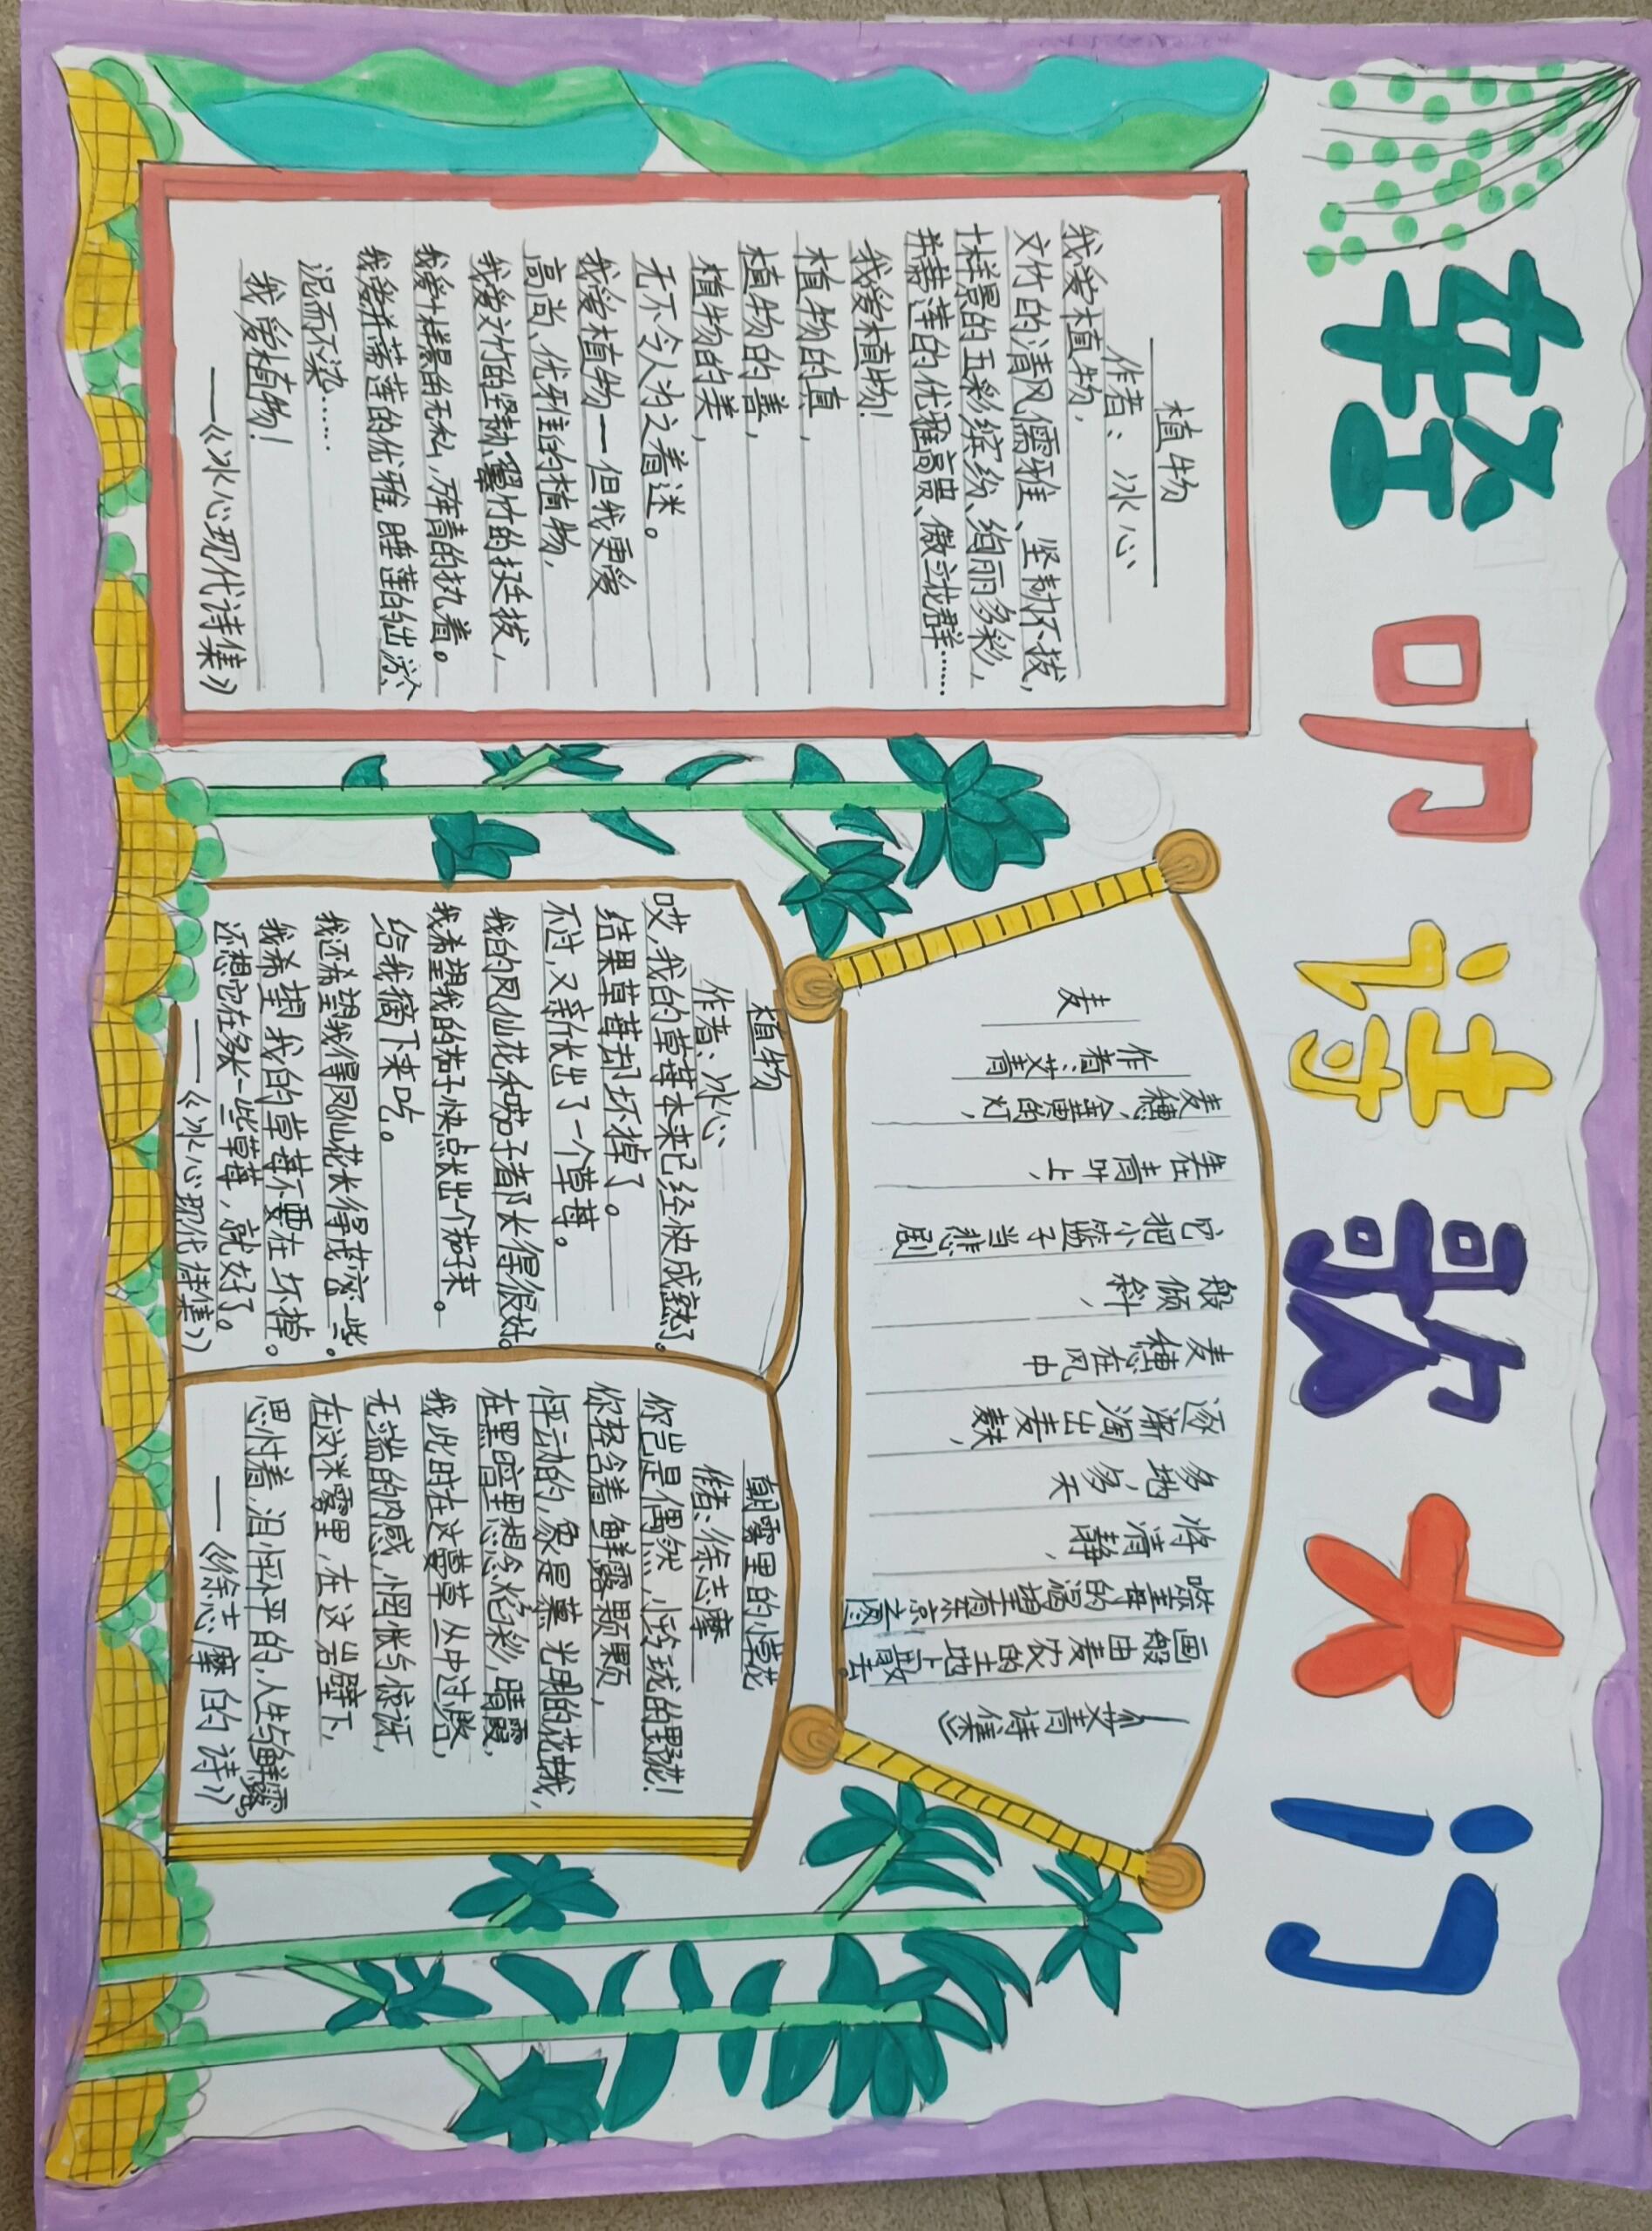 轻叩诗歌大门
植物
作者：冰心
我爱植物，
文竹的清风儒雅、坚韧不拔，
十样景的五彩缤纷、绚丽多彩，
并蒂莲的优雅高贵、傲立花群……
我爱植物！
植物的真，
植物的善，
植物的美，
无不令人为之着迷。
我爱植物一但我更爱
高尚、优雅的植物，
我爱文竹的坚韧、翠竹的挺拔，
我爱十样景的无私，
的执着。
我爱并蒂莲的优雅，睡莲的出淤
泥而不染……
我爱植物！
——《冰心现代诗集》
麦
作者：艾青
麦穗，金黄的灯，
坐在青叶上，
它把小篮子当悲剧
般倾斜，
麦穗在风中
逐渐淘出麦麸，
多地，多天
将清静，
的渴望看哀京之图
画般由麦农的土地上敲击
《艾青诗集》
植物
作者：冰心
哎，我的草莓本来已经快成熟了。
结果草莓却坏掉了。
不过，又新长出了一个草莓。
我的凤仙花和茄子都长得很好。
我希望我的茄子快点长出个茄子来。
给我摘下来吃。
我还希望我得凤仙花长得茂密一些。
我希望我的草莓不要在坏掉。
还想它在多长一些草莓，就好了。
——《冰心现代诗集》
朝雾里的小草花
作者：徐志摩
你岂是偶然，小玲珑的野花！
你轻含着鲜露颗颗，
怦动的，象是慕光明的花蛾，
在黑暗里想念焰彩，晴霞，
我此时在这蔓草丛中过路，
无端的内感，惘怅与惊讶，
在这迷雾里，在这岩壁下，
思忖着，泪怦怦的，人生与鲜露。
——《徐志摩的诗》